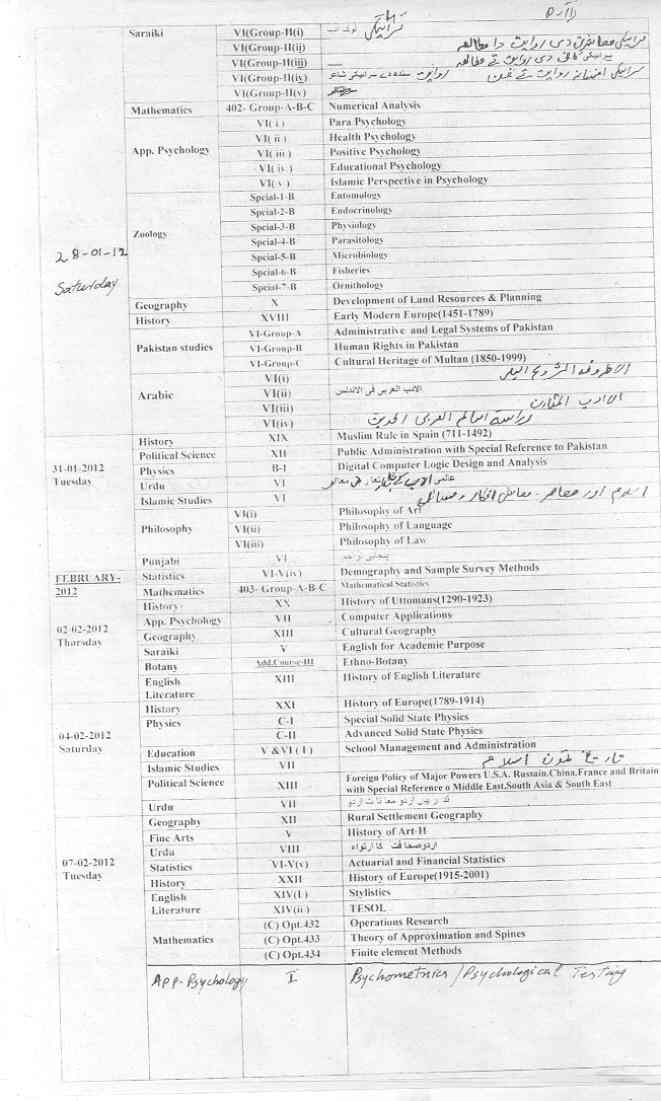 Saraiki VI(Group-II(i) سرائیکی
VI(Group-II(ii)
VI(Group-II(iii)
VI(Group-II(iv)
VI(Group-II(v)
Mathematics 402- Group-A-B-C Numerical Analysis
App. Psychology VI( i ) Para Psychology
VI( ii ) Health Psychology
VI( iii ) Positive Psychology
VI( iv ) Educational Psychology
VI( v ) Islamic Perspective in Psychology
Zoology Spcial-1-B Entomology
Spcial-2-B Endocrinology
Spcial-3-B Physiology
Spcial-4-B Parasitology
Spcial-5-B Microbiology
Spcial-6-B Fisheries
Spcial-7-B Ornithology
28-01-12
Saturday
Geography X Development of Land Resources & Planning
History XVIII Early Modern Europe(1451-1789)
Pakistan studies VI-Group-A Administrative and Legal Systems of Pakistan
VI-Group-B Human Rights in Pakistan
VI-Group-C Cultural Heritage of Multan (1850-1999)
Arabic VI(i)
VI(ii) الادب العربی فی الاندلس
VI(iii) الادب المقارن
VI(iv) دراسة العالم العربی الحدیث
31-01-2012
Tuesday
History XIX Muslim Rule in Spain (711-1492)
Political Science XII Public Administration with Special Reference to Pakistan
Physics B-I Digital Computer Logic Design and Analysis
Urdu VI
Islamic Studies VI اسلام اور معاصر معاشی افکار و مسائل
Philosophy VI(i) Philosophy of Art
VI(ii) Philosophy of Language
VI(iii) Philosophy of Law
Punjabi VI
FEBRUARY-
2012
Statistics VI-V(iv) Demography and Sample Survey Methods
Mathematics 403- Group-A-B-C Mathematical Statistics
History XX History of Uttomans(1290-1923)
02-02-2012
Thursday
App. Psychology VII Computer Applications
Geography XIII Cultural Geography
Saraiki V English for Academic Purpose
Botany Add.Course-III Ethno-Botany
English XIII History of English Literature
Literature
04-02-2012
Saturday
History XXI History of Europe(1789-1914)
Physics C-I Special Solid State Physics
C-II Advanced Solid State Physics
Education V &VI ( I ) School Management and Administration
Islamic Studies VII تاریخ تمدن اسلام
Political Science XIII Foreign Policy of Major Powers U.S.A. Russain.China,France and Britain
with Special Reference o Middle East,South Asia & South East
Urdu VII
07-02-2012
Tuesday
Geography XII Rural Settlement Geography
Fine Arts V History of Art-II
Urdu VIII اردو صحافت کا ارتقاء
Statistics VI-V(v) Actuarial and Financial Statistics
History XXII History of Europe(1915-2001)
English XIV(I ) Stylistics
Literature XIV(ii ) TESOL
Mathematics (C) Opt.432 Operations Research
(C) Opt.433 Theory of Approximation and Spines
(C) Opt.434 Finite element Methods
App-Psychology I Psychometrics / Psychological Testing